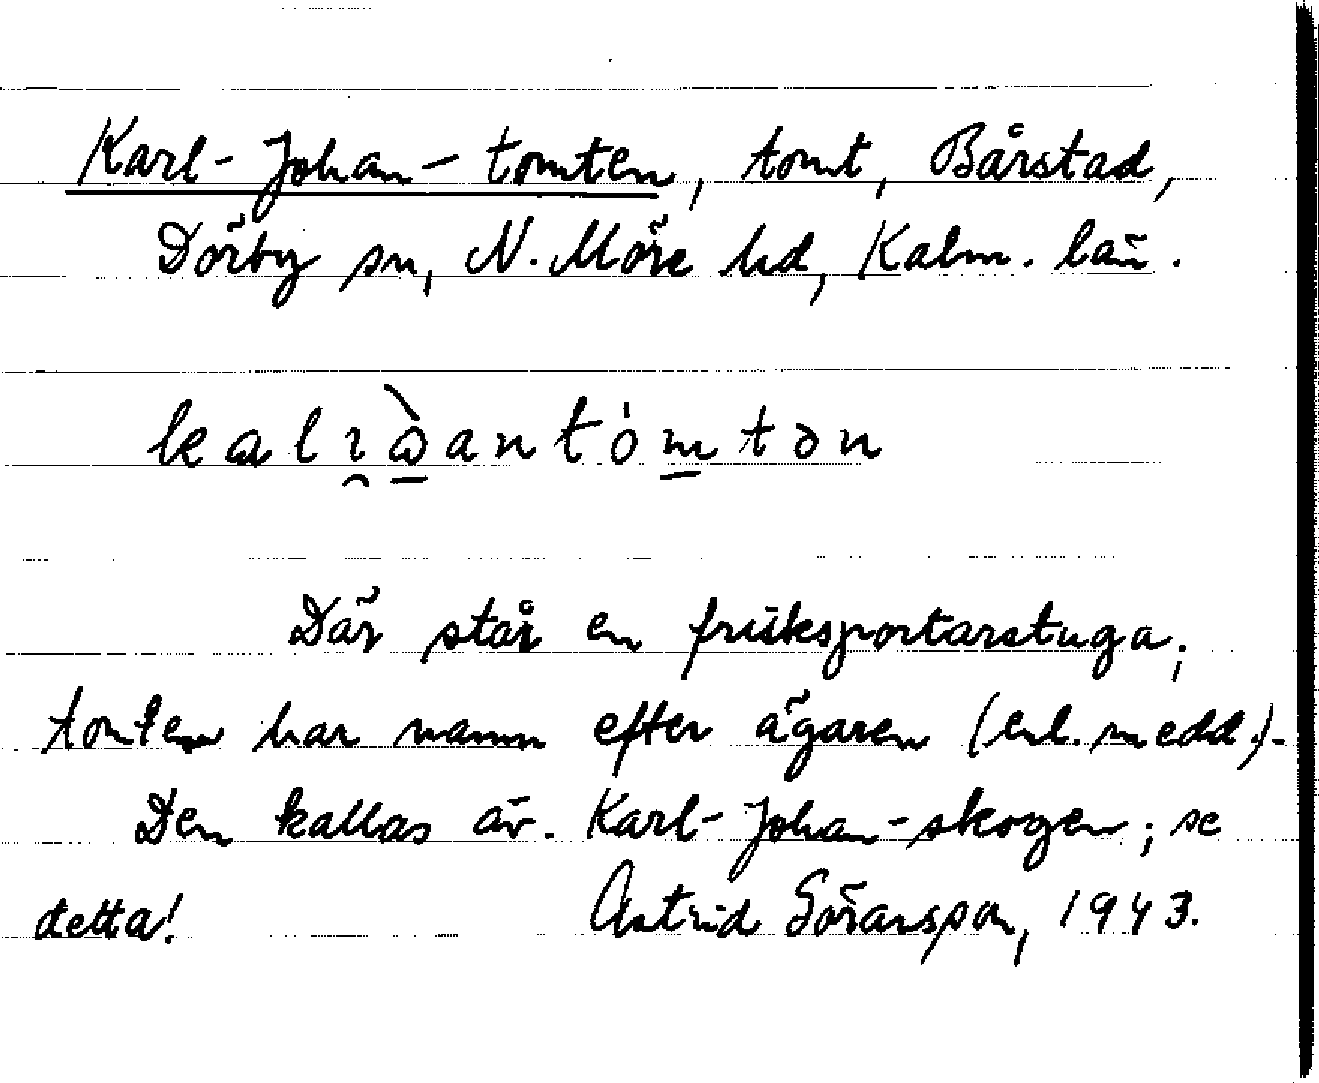 Karl-Johan-tomten, tomt, Bårstad,
Dörby sn, N. Möre hd, Kalm. län.
Där står en friluksportarstuga;
tomten har namn efter ägaren (enl. medd.).
Den kallas äv. Karl-Johan-skogen; se
detta! Astrid Göransson, 1943.